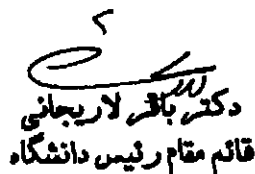 دکتر باقر لاریجانی
قائم مقام رئیس دانشگاه